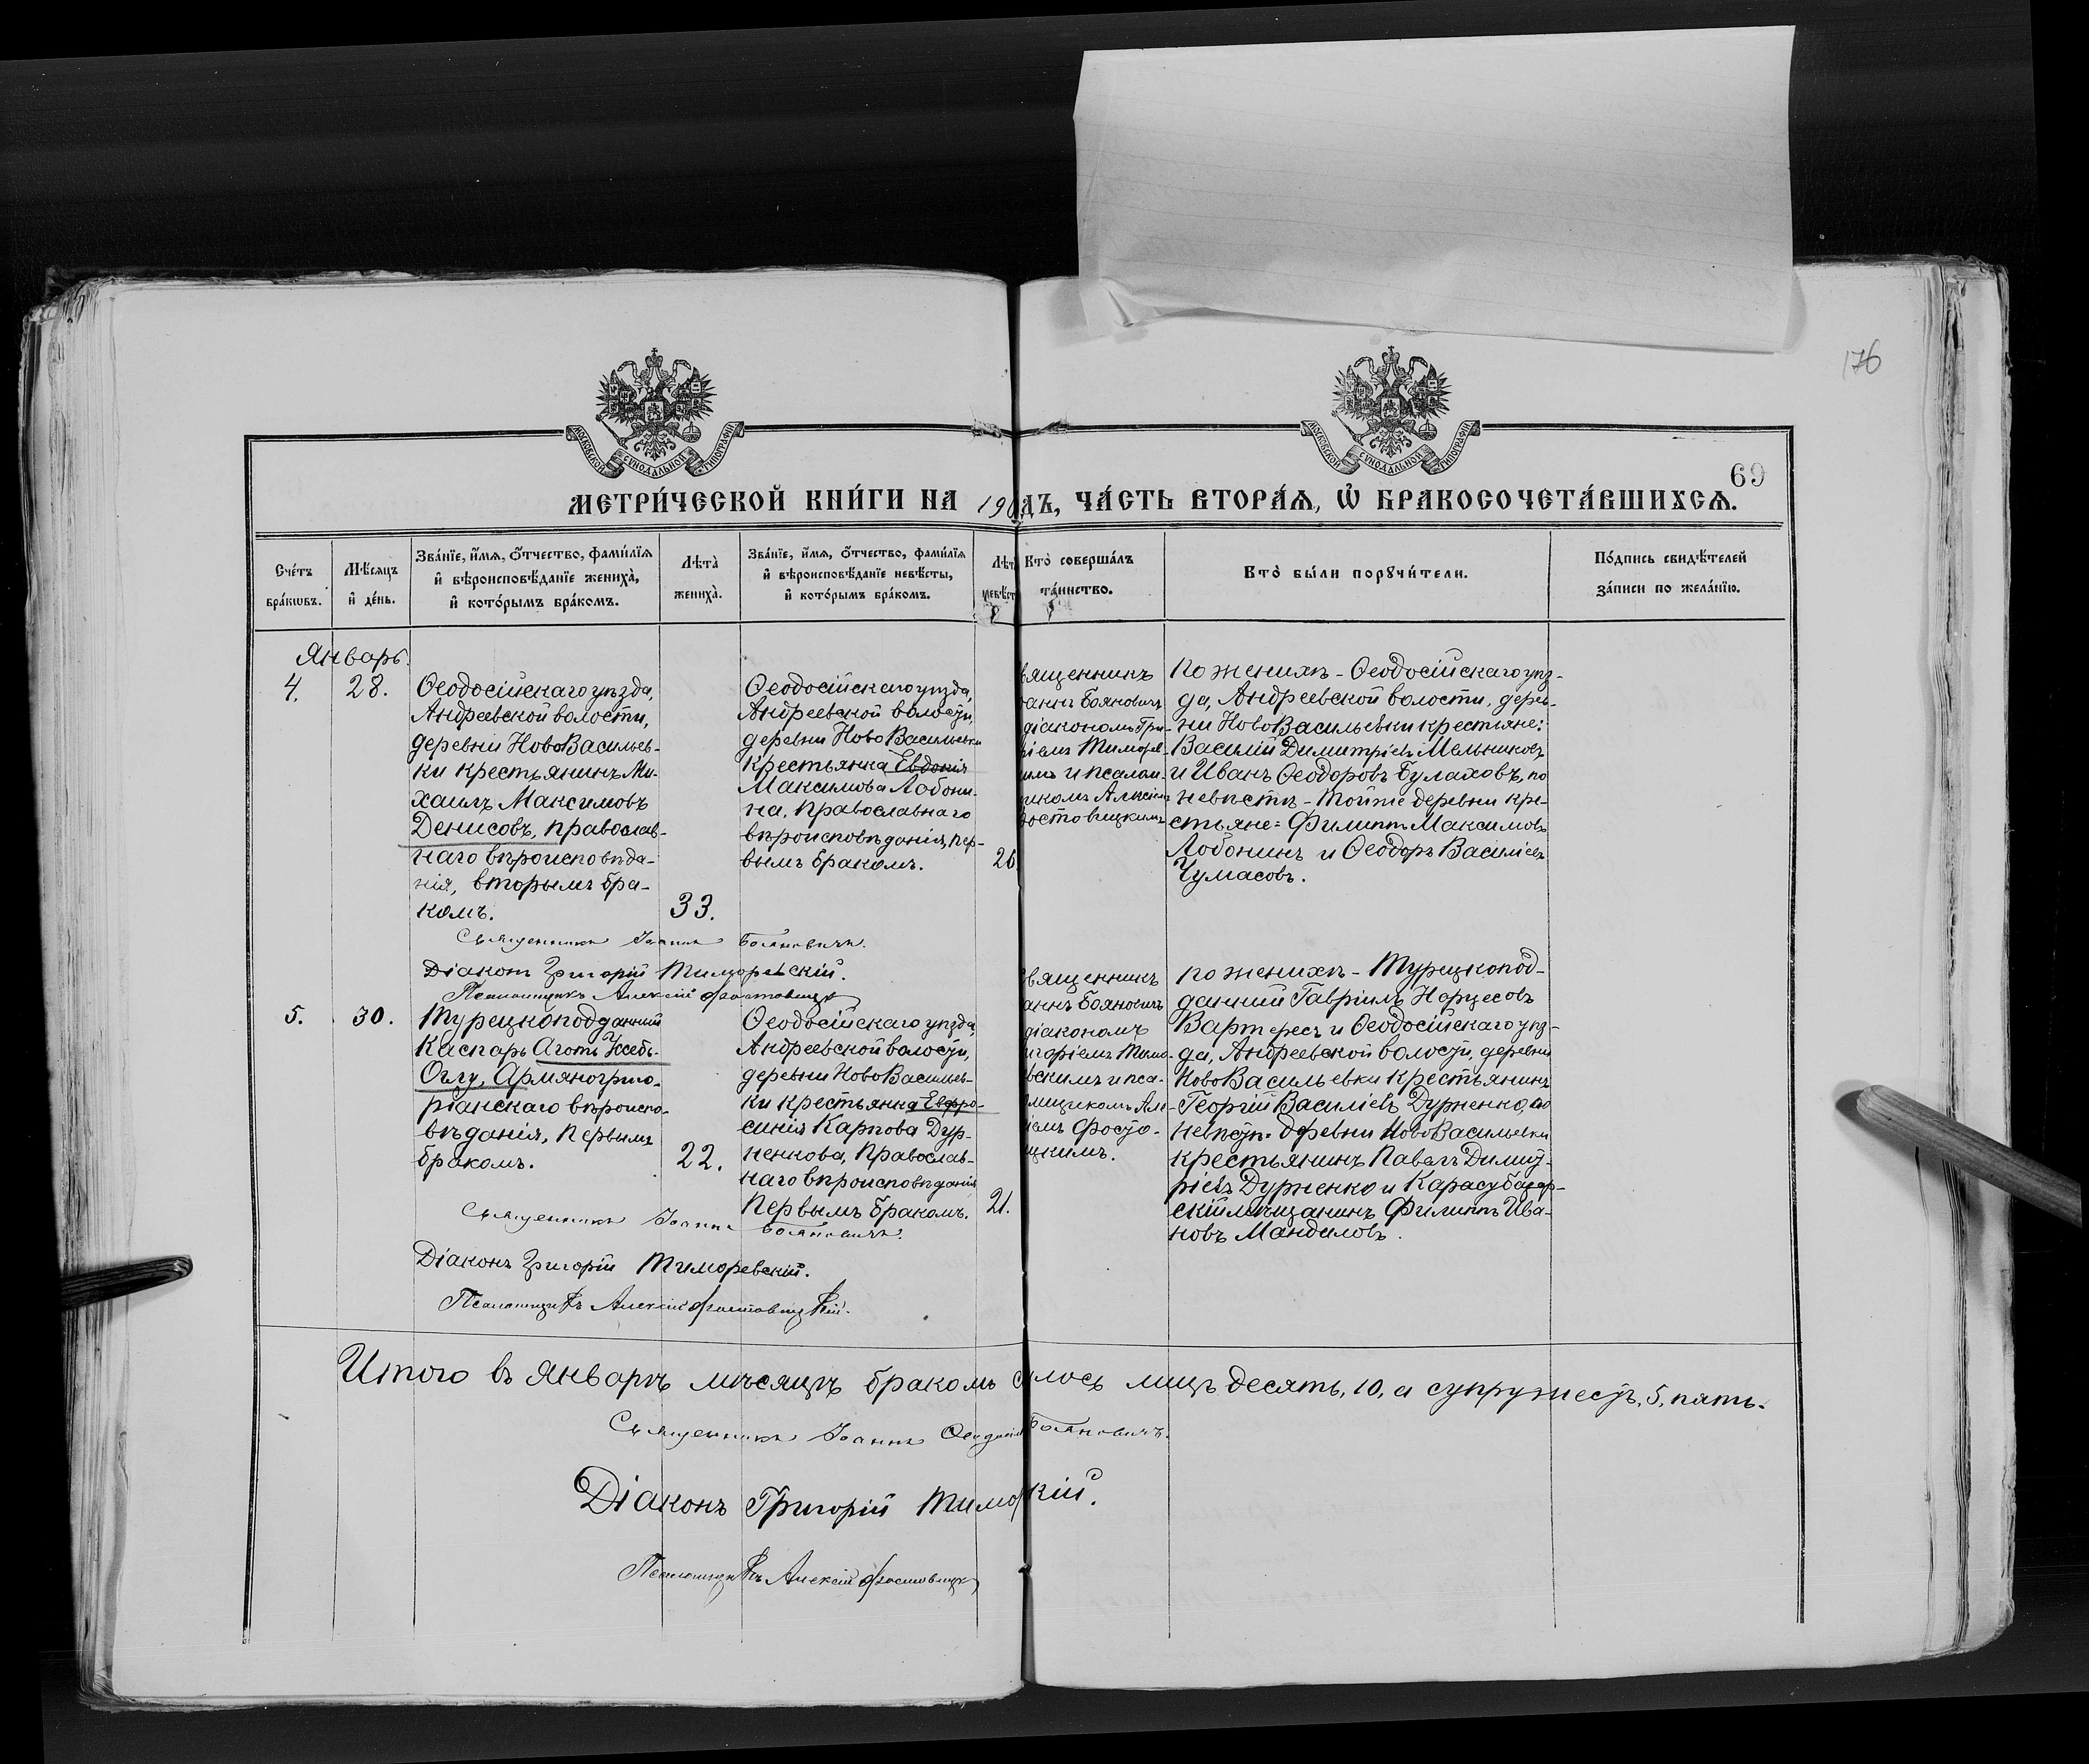 176
МОСКОВСКОЙ СѴНОДАЛЬНОЙ ТИПОГРАФІИ
МОСКОВСКОЙ СѴНОДАЛЬНОЙ ТИПОГРАФІИ
69
МЕТРИ́ЧЕСКОЙ КНИ́ГИ НА 190 ДЪ, ЧА́СТЬ ВТОРА́Ѧ, Ѡ҆ БРАКОСОЧЕТА́ВШИХСѦ.
Сче́тъ
бра́кѡвъ.
Мѣ́сѧцъ
и҆ де́нь.
Зва́нїе, и҆́мѧ, ѻ҆́тчество, фами́лїѧ
и҆ вѣроисповѣ́данїе жениха̀,
и҆ кото́рымъ бра́комъ.
Лѣта̀
жениха̀.
Зва́нїе, и҆́мѧ, ѻ҆́тчество, фами́лїѧ
и҆ вѣроисповѣ́данїе невѣ́сты,
и҆ кото́рымъ бра́комъ.
Лѣт
невѣст
Кто̀ соверша́лъ
та́инство.
Кто̀ бы́ли порꙋчи́тели.
По́дпись свидѣ́телей
за́писи по жела́нїю.
Январь.
4.
28.
Ѳеодосійскаго уѣзда,
Андреевской волости,
деревни НовоВасильев-
ки крестьянинъ Ми-
хаилъ Максимовъ
Денисовъ, православ-
наго вѣроисповѣда-
нія, вторымъ бра-
комъ.
33.
Ѳеодосійскаго уѣзда,
Андреевской волости,
деревни НовоВасильевки
крестьянка Евдокія
Максимова Лобони-
на, православнаго
вѣроисповѣданія, пер-
вымъ бракомъ.
26
вященникъ
оаннъ Бояновичъ
діакономъ Гри-
ріемъ Тиморев-
имъ и псалом-
икомъ Алексіемъ
остовицкимъ
По женихѣ - Ѳеодосійскаго уѣз-
да, Андреевской волости, дерев-
ни НовоВасильевки крестьяне:
Василій Димитріевъ Мельниковъ
и Иванъ Ѳеодоровъ Булаховъ, по
невѣстѣ - тойже деревни кре-
стьяне: Филиппъ Максимовъ
Лобонинъ и Ѳеодоръ Василіевъ
Чумасовъ.
Священникъ Іоаннъ Бояновичъ.
Діаконъ Григорій Тиморевскій.
Псаломщикъ Алексій
5.
30.
Турецкоподданный
Каспаръ Агопъ Усебъ-
Оглу, Армяногриго-
ріанскаго вѣроиспо-
вѣданія, первымъ
бракомъ.
22.
Ѳеодосійскаго уѣзда,
Андреевской волости,
деревни НовоВасильев-
ки крестьянка Евфро-
синія Карпова Дур-
ненкова, православ-
наго вѣроисповѣданія
первымъ бракомъ.
21.
вященникъ
аннъ Бояновичъ
діакономъ
игоріемъ Тимо-
вскимъ и пса-
мщикомъ Але-
іемъ Фосто-
цкимъ.
По женихѣ - Турецкопод-
данный Гавріилъ Нарцесовъ
Вартересъ и Ѳеодосійскаго уѣз-
да, Андреевской волости, деревни
НовоВасильевки крестьянинъ
Георгій Василіевъ Дурненко, по
невѣстѣ - деревни НовоВасильевки
крестьянинъ Павелъ Димит-
ріевъ Дурненко и Карасубазар-
скій мѣщанинъ Филиппъ Ива-
новъ Мандиловъ.
Священникъ Іоаннъ Бояновичъ.
Діаконъ Григорій Тиморевскій.
Псаломщикъ Алексій
Итого въ Январѣ мѣсяцѣ бракомъ лось лицъ десять, 10, а супружествъ, 5, пять.
Священникъ Іоаннъ Бояновичъ.
Діаконъ Григорій Тимо кій.
Псаломщикъ Алексій